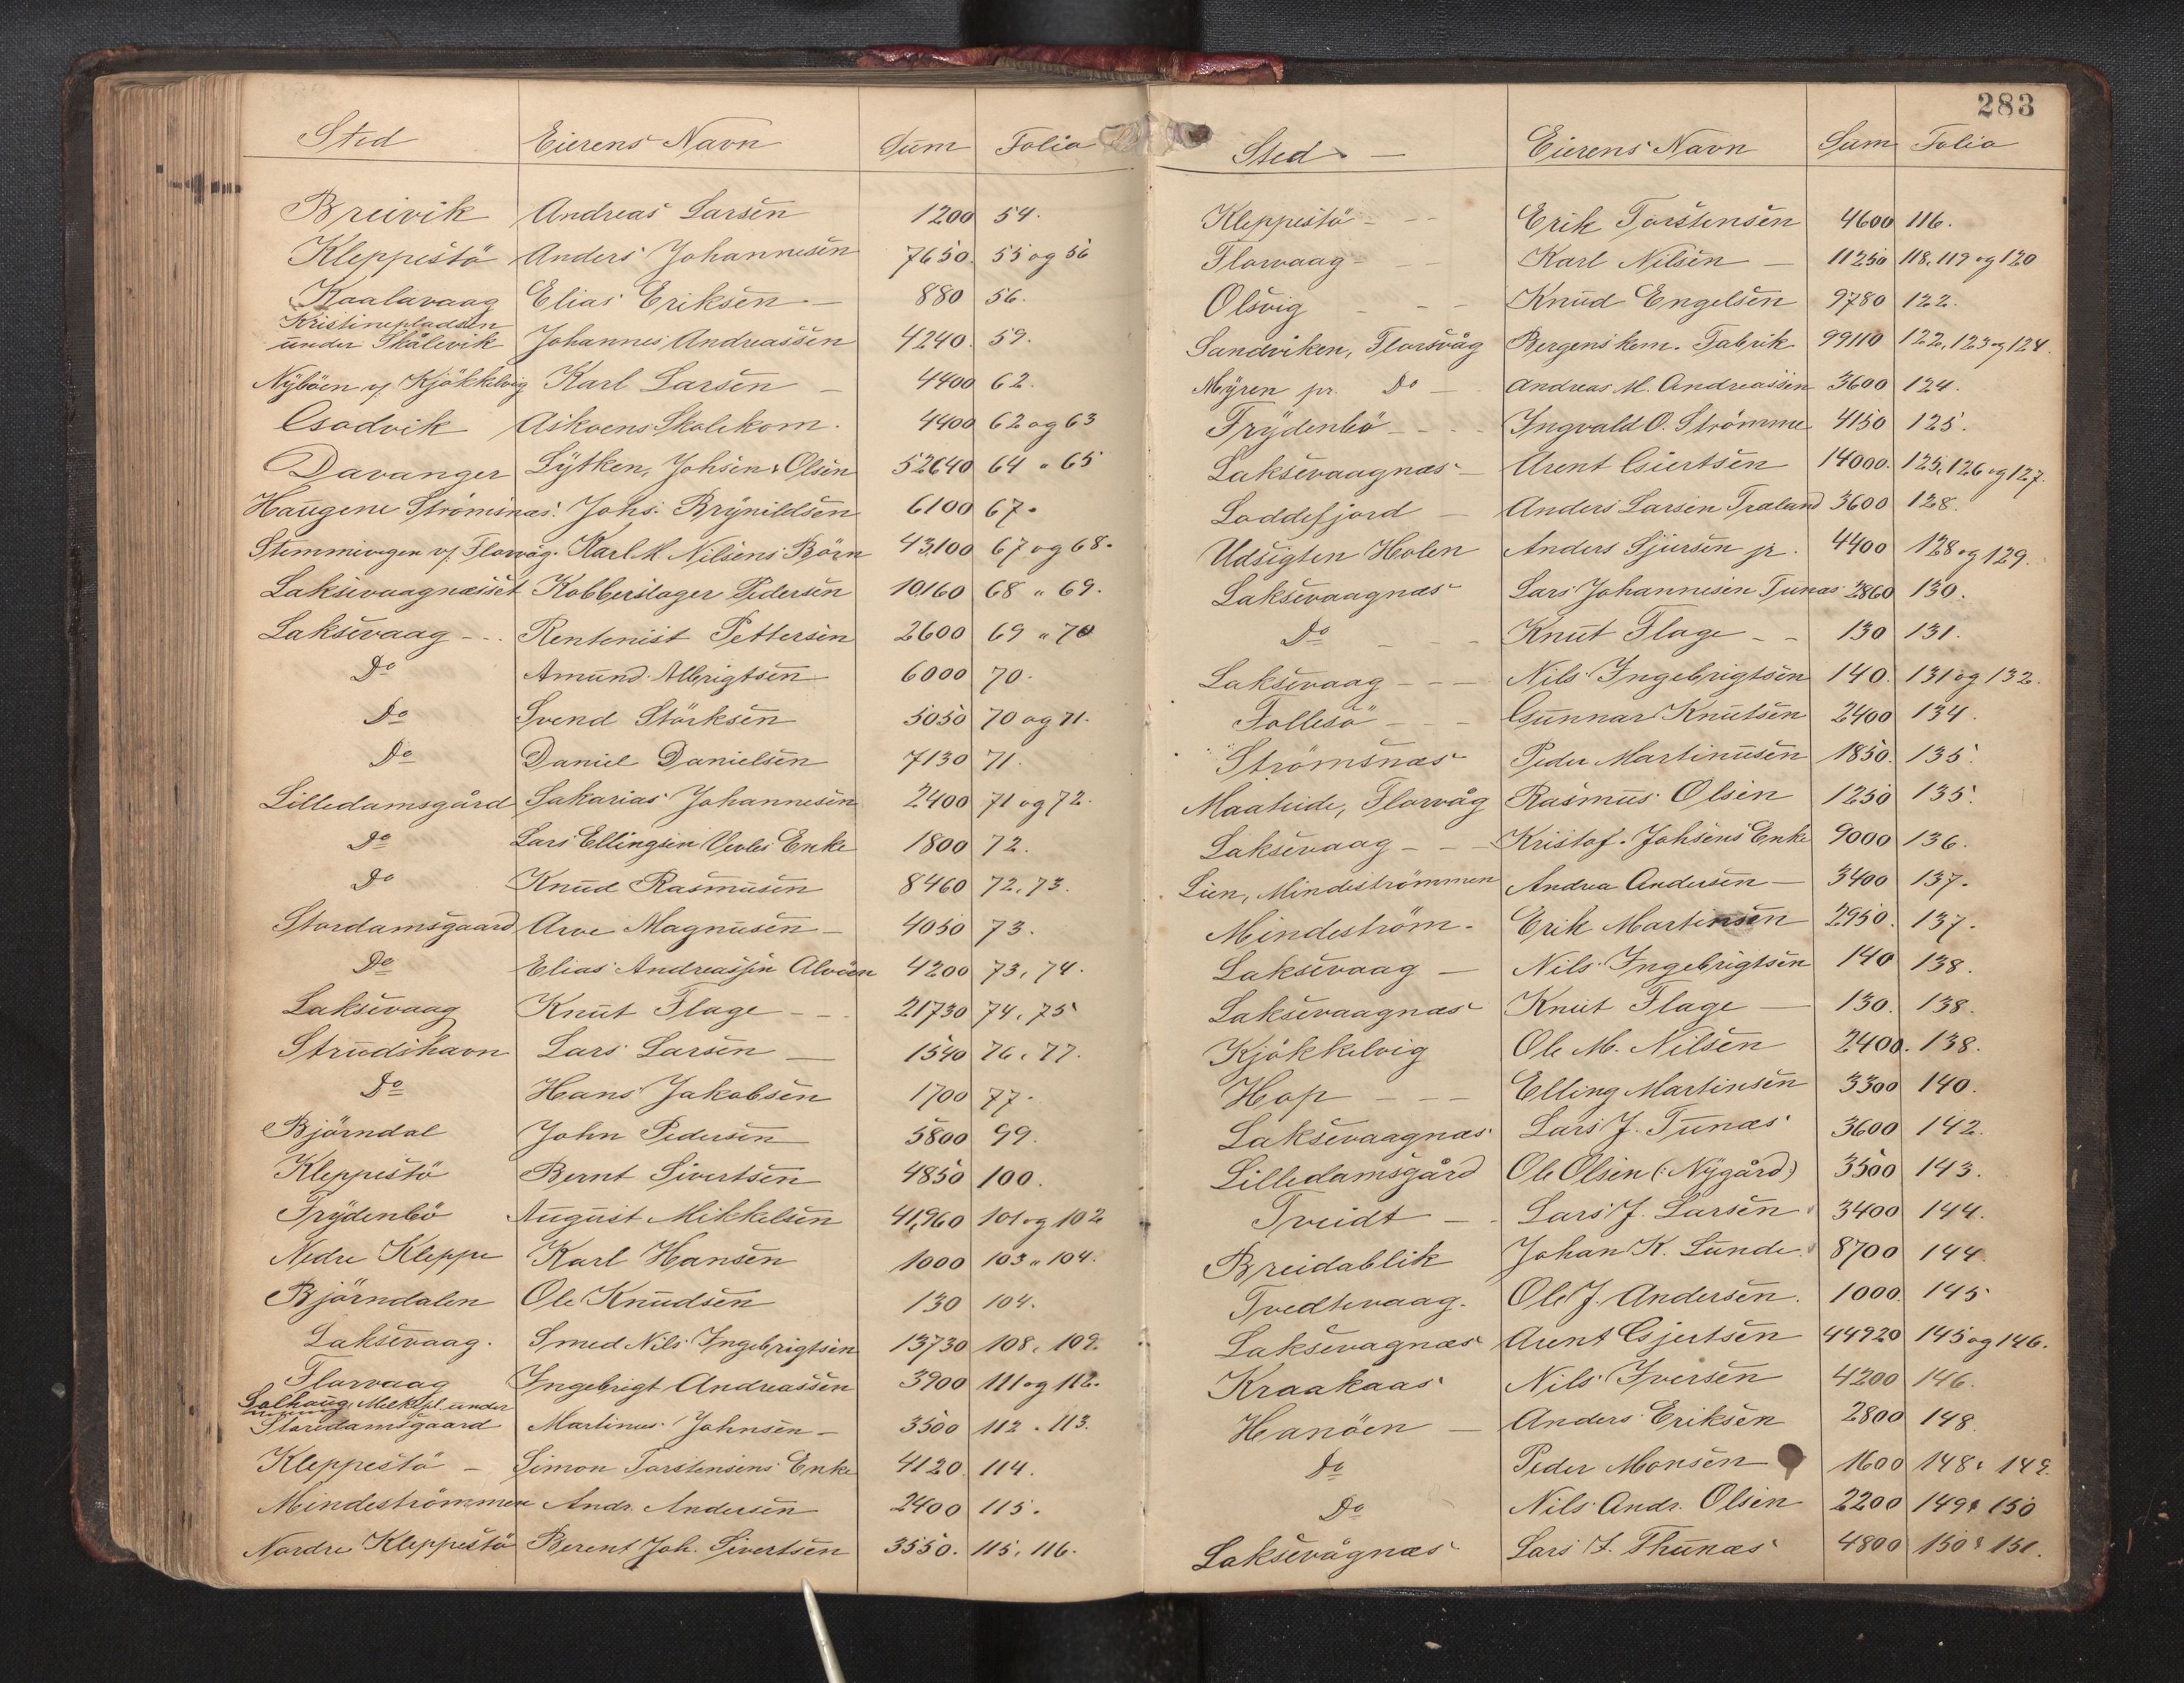 Sted Eierens Navn Sum Folio
Breivik Andreas Larsen 1200 54.
Kleppestö Anders Johannesen 7650. 55 og 56
Kaalavaag Elias Eriksen — 880 56.
Kristinepladsen
under Skålevik Johannes Andreassen 4240. 59.
Nyböen v/ Kjökkelvig Karl Larsen — 4400 62.
Gsodvik Askoens Skolekom. 4400 62 og 63
Davanger Lytken, Johsen & Olsen 52640 64 " 65
Haugene Strömsnæs. Johs. Brynildsen 6100 67.
Stemmivegen v/ Florvåg. Karl M. Nilsens Börn 43,100 67 og 68.
Laksevaagnæsset Kobberslager Pedersen 10160 68 " 69.
Laksevaag - . . Rentenist Pettersen 2600 69 " 70
Do Amund Albrigtsen 6000 70.
Do Svend Störksen 5050 70 og 71.
Do Daniel Danielsen 7130 71.
Lilledamsgård Sakarias Johannesen 2400 71 og 72.
Do Lars Ellingsen Enke 1800 72.
Do Knud Rasmusen 8460 72, 73.
Stordamsgaard Arve Magnusen — 4050 73.
Do Elias Andreassen Alvöen 4200 73, 74.
Laksevaag Knut Flage — . . 21730 74, 75
Strudshavn Lars Larsen — 1540 76, 77.
Do Hans Jakobsen 1700 77.
Björndal John Pedersen 5800 99.
Kleppestö Bernt Sivertsen 4850 100.
Frydenbö August Mikkelsen 41,960 101 og 102
Nedre Kleppe Karl Hansen 1000 103 " 104.
Björndalen Ole Knudsen 130 104.
Laksevaag. Smed Nils Ingebrigtsen 13730 108, 109.
Florvaag Ingebrigt Andreassen 3900 111 og 112.
Solhaug, under
Storedamsgaard Martinus Johnsen — 3500 112 . 113.
Kleppestö — Simon Torstensens Enke 4120 114.
Mindeströmmen Andr. Andersen 2400 115.
Nordre Kleppestö Berent Joh. Sivertsen 3550. 115, 116.
283
Sted — Eierens Navn Sum Folio
Kleppestö - - - Erik Torstensen 4600 116.
Florvaag - — Karl Nilsen — 11250 118, 119 og 120
Olsvig - - - Knud Engelsen 9780 122.
Sandviken, Florsvåg Bergens kem. Fabrik 99110 122, 123 og 124.
Myren pr. Do — Andreas M. Andreassen 3600 124.
Frydenbö - - - - Ingvald O. Strömme 4150 125.
Laksevaagnæs - Arent Giertsen 14000. 125, 126 og 127.
Loddefjord — Anders Larsen Træland 3600 128.
Udsigten Holen Anders Sjursen jr. 4400 128 og 129.
Laksevaagnæs Lars Johannesen Tunæs 2860 130.
Do - - - Knut Flage - - 130 131.
Laksevaag - - — Nils Ingebrigtsen 140. 131 og 132.
Follesö - - - Gunnar Knutsen 2400 134.
Strömsnæs Peder Martinusen 1850. 135.
Maaheide, Florvåg Rasmus Olsen 1250 135.
Laksevaag - - - Kristof. Johsens Enke 9000 136.
Lien, Mindeströmmen Andrea Andersen — 3400 137.
Mindeström. Erik Martinsen 2950. 137.
Laksevaag — Nils Ingebrigtsen 140 138.
Laksevaagnæs Knut Flage — 130. 138.
Kjökkelvig Ole M. Nilsen 2400. 138.
Hop - - — Elling Martinsen 3300 140.
Laksevaagnæs Lars J. Tunæs 3600 142.
Lilledamsgård Ole Olsen (: Nygård) 3500 143.
Tveidt — . Lars J. Larsen 3400 144.
Breidablik Johan K. Lunde. 8700 144.
Tvedtevaag. Ole J. Andersen. 1000. 145
Laksevagnæs Arent Gjertsen 44920 145 og 146.
Kraakaas Nils Iversen 4200 146.
Hanöen — Anders Eriksen 2800 148.
Do Peder Monsen 1600 148 & 149.
Do Nils Andr. Olsen 2200 149 & 150
Laksevågnæs Lars J. Thunæs 4800 150 & 151.